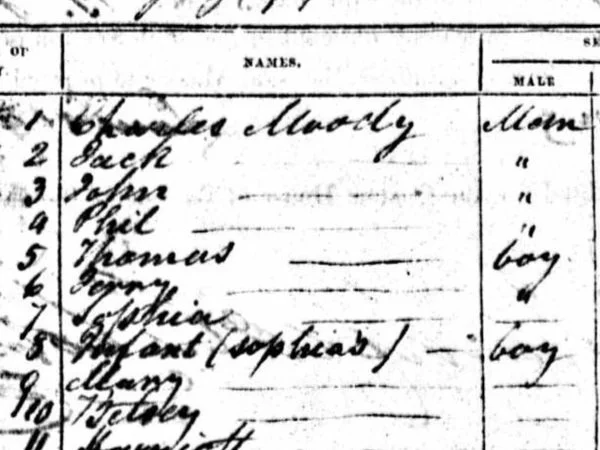 OF NAMES. SE
MALE
1 Charles Moody Man
2 Jack "
3 John "
4 Phil "
5 Thomas boy
6 Jerry "
7 Sophia
8 Infant (sophia's) boy
9 Mary
10 Betsey
11 Harriott